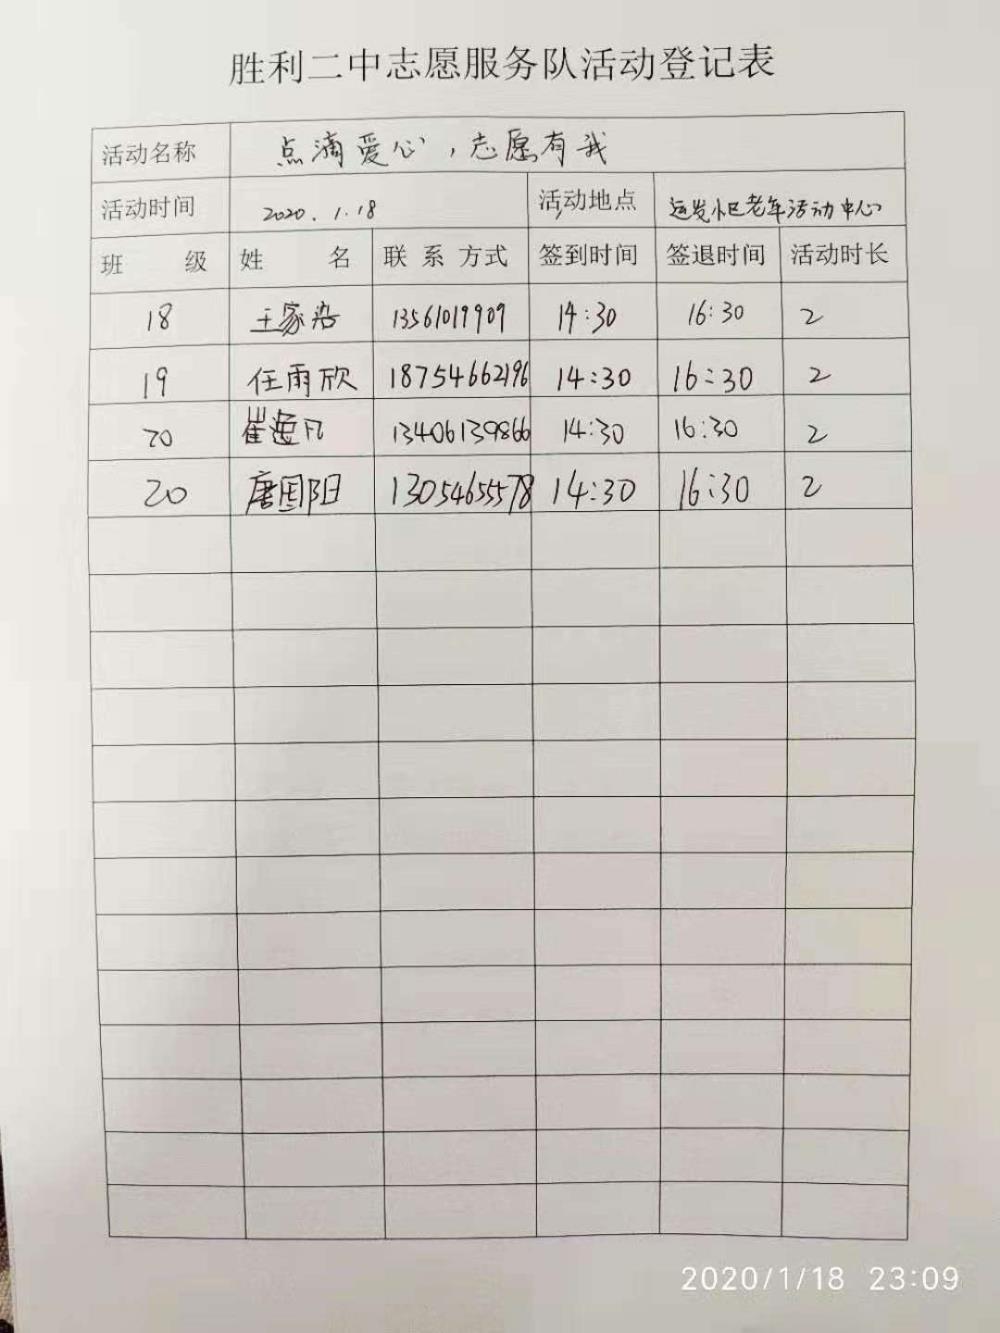 胜利二中志愿服务队活动登记表
活动名称 点滴爱心，志愿有我
活动时间 2020.1.18 活动地点 运发小区老年活动中心
班 级 姓 名 联系方式 签到时间 签退时间 活动时长
18 王家 13561019909 14:30 16:30 2
19 任雨欣 18754662196 14:30 16:30 2
20 崔逸凡 13406139866 14:30 16:30 2
20 唐国阳 13054655578 14:30 16:30 2
2020/1/18 23:09